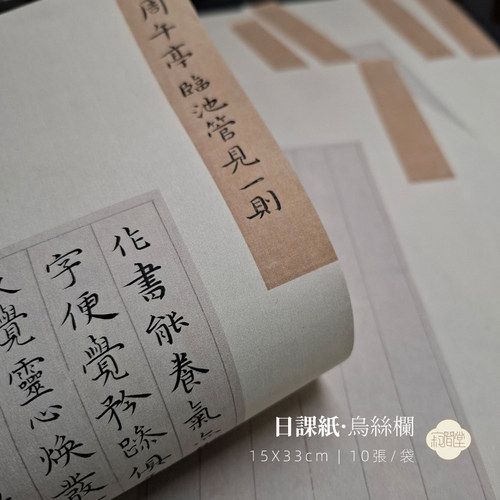 周午亭臨池管見一則
作書能養氣
字便覺矜躁俱
覺靈心煥發
日課紙·烏絲欄
15X33cm | 10張/袋